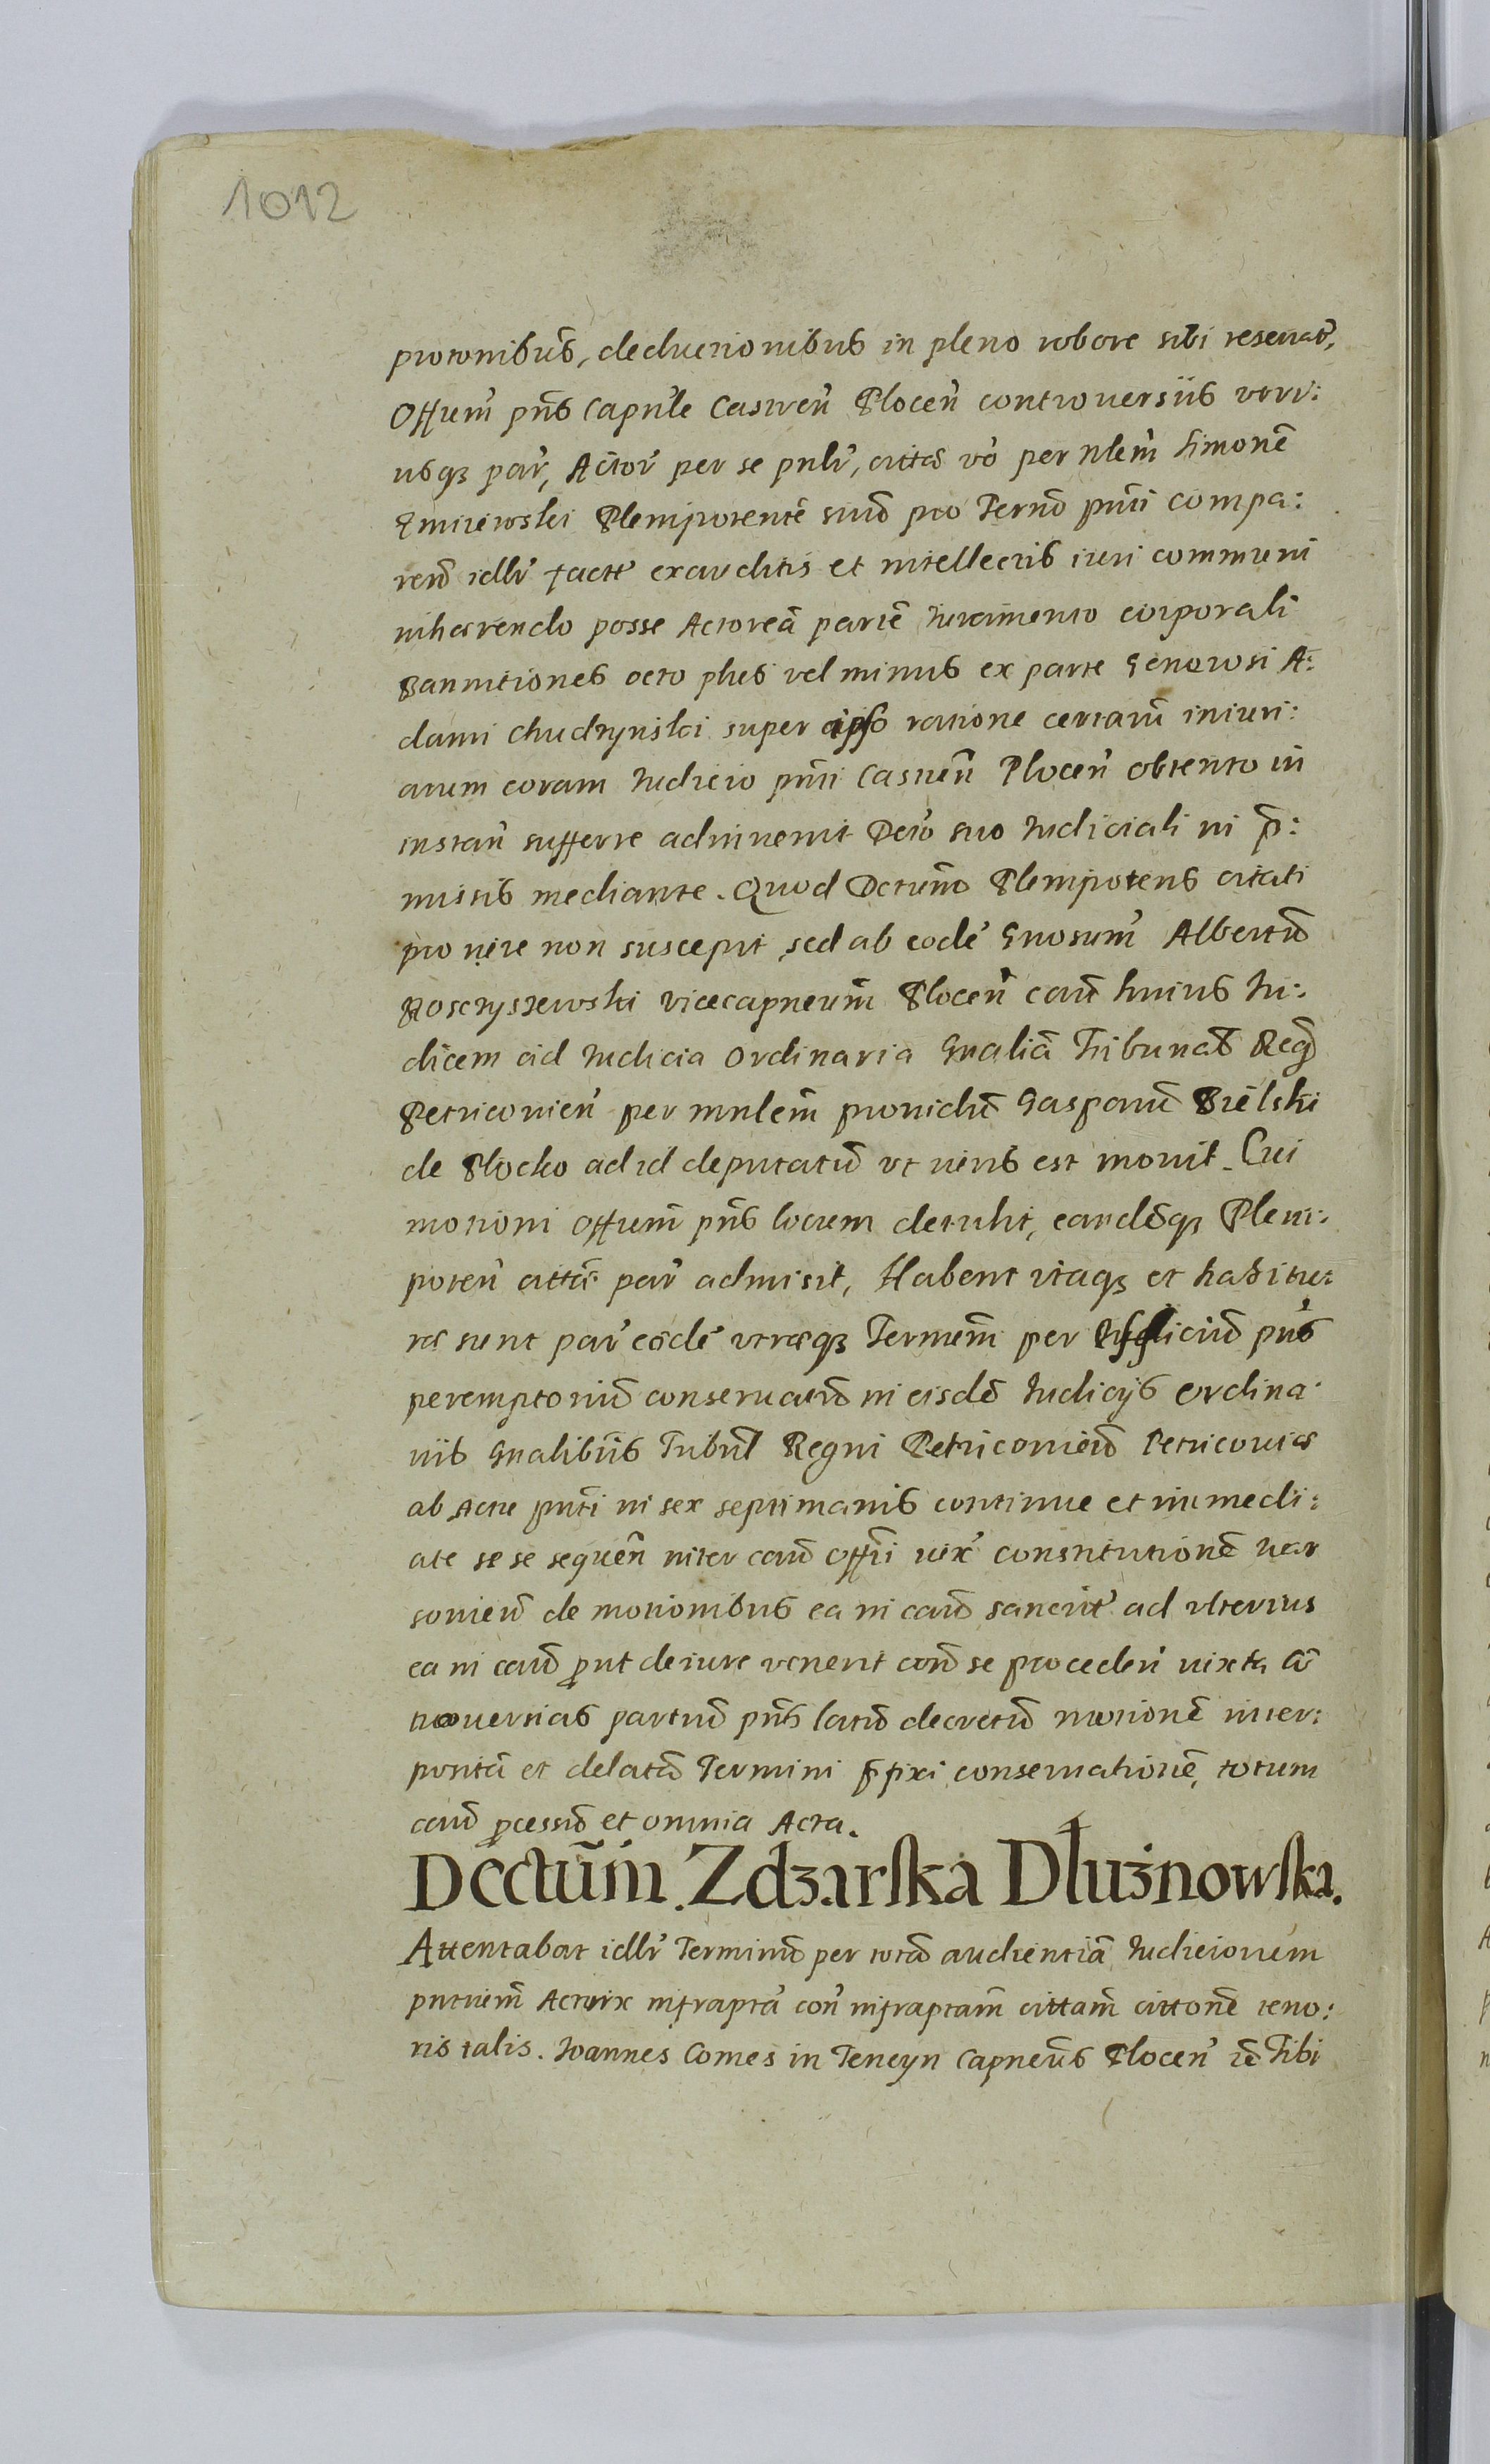 1012
protonibus, deductionibus in pleno robore sibi reseruat,
Offium pns Capnle Castren Plocen controuersiis vtri:
usq3 par, Actor per se pnlr, cittae vo per nlem Simone
Gmirewski Plenipotente suu pro Termo pnti compa:
ren idlr facte exauditis et intellectis iuri communi
inhaerendo posse Actorea parte Iuramento corporali
Bannitiones octo plus vel minus ex parte Generosi A:
dami Chudzynski super ipso ratione certaru iniuri:
arum coram Iudicio pnti Castren Plocen obtento in
instan sufferre adinuenit Dero suo Iudiciali in p:
missis mediante. Quod Dctum Plenipotens citati
pro iure non suscepit sed ab eode Gnosum Albertu
Rosczyszewski vicecapneum Plocen cau huius Iu:
dicem ad Iudicia Ordinaria Gnalia Tribunal Regi
Petricouien per mnlem prouidu Gasparu Bielski
de Plocko ad id deputatu vt iuris est mouit. Cui
motioni Offium pns locum detulit, eandeq3 Pleni:
poten citta par admisit, Habent itaq3 et habitu:
rae sunt par eode vtraeq3 Termum per Officiu pns
peremptoriu conseruatu in eisde Iudicijs Ordina
riis Gnalibus Tribnl Regni Petricouien Petricouiae
ab Actu pnti in sex septimanis continue et immedi:
ate se se sequen inter cau offii iux constitutione Var
souien de motionibus ea in cau sancit ad vlterius
ea in cau put de iure venerit con se procedeñ iuxta co
trouersias partiu pns latu decretu motione inter:
posita et delata Termini pfixi conseruatione, totum
cau pcessu et omnia Acta.
Dcctum Zdzarska Dłużnowska.
Attentabat idlr Terminu per tota audientia Iudiciorum
pntium Actrix infrapta con infraptam cittam cittone teno:
ris talis. Ioannes Comes in Tencyn Capneus Plocen ié Tibi